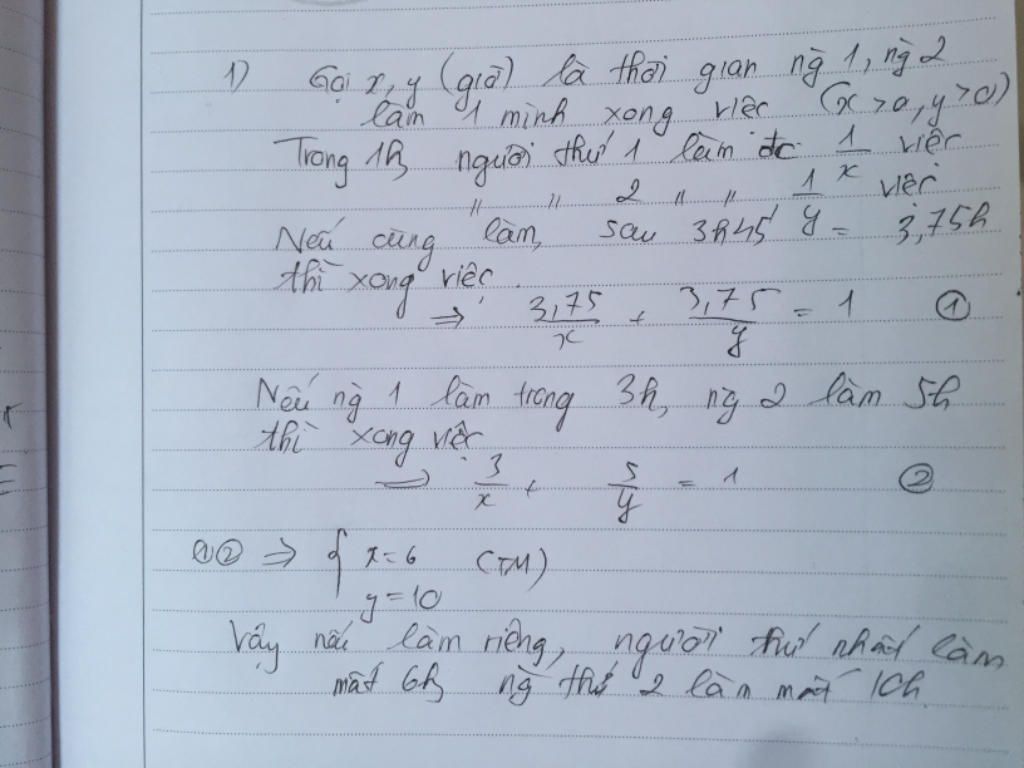 1) Gọi x, y (giờ) là thời gian ng 1, ng 2
làm 1 mình xong việc (x > 0, y > 0)
Trong 1h người thứ 1 làm đc 1/x việc
〃 〃 2 〃 〃 1/y việc
Nếu cùng làm, sau 3h45' = 3,75h
thì xong việc.
⇒ 3,75/x + 3,75/y = 1 ①
Nếu ng 1 làm trong 3h, ng 2 làm 5h
thì xong việc
⇒ 3/x + 5/y = 1 ②
①② ⇒ { x = 6 (TM)
y = 10
Vậy nếu làm riêng, người thứ nhất làm
mất 6h ng thứ 2 làm mất 10h